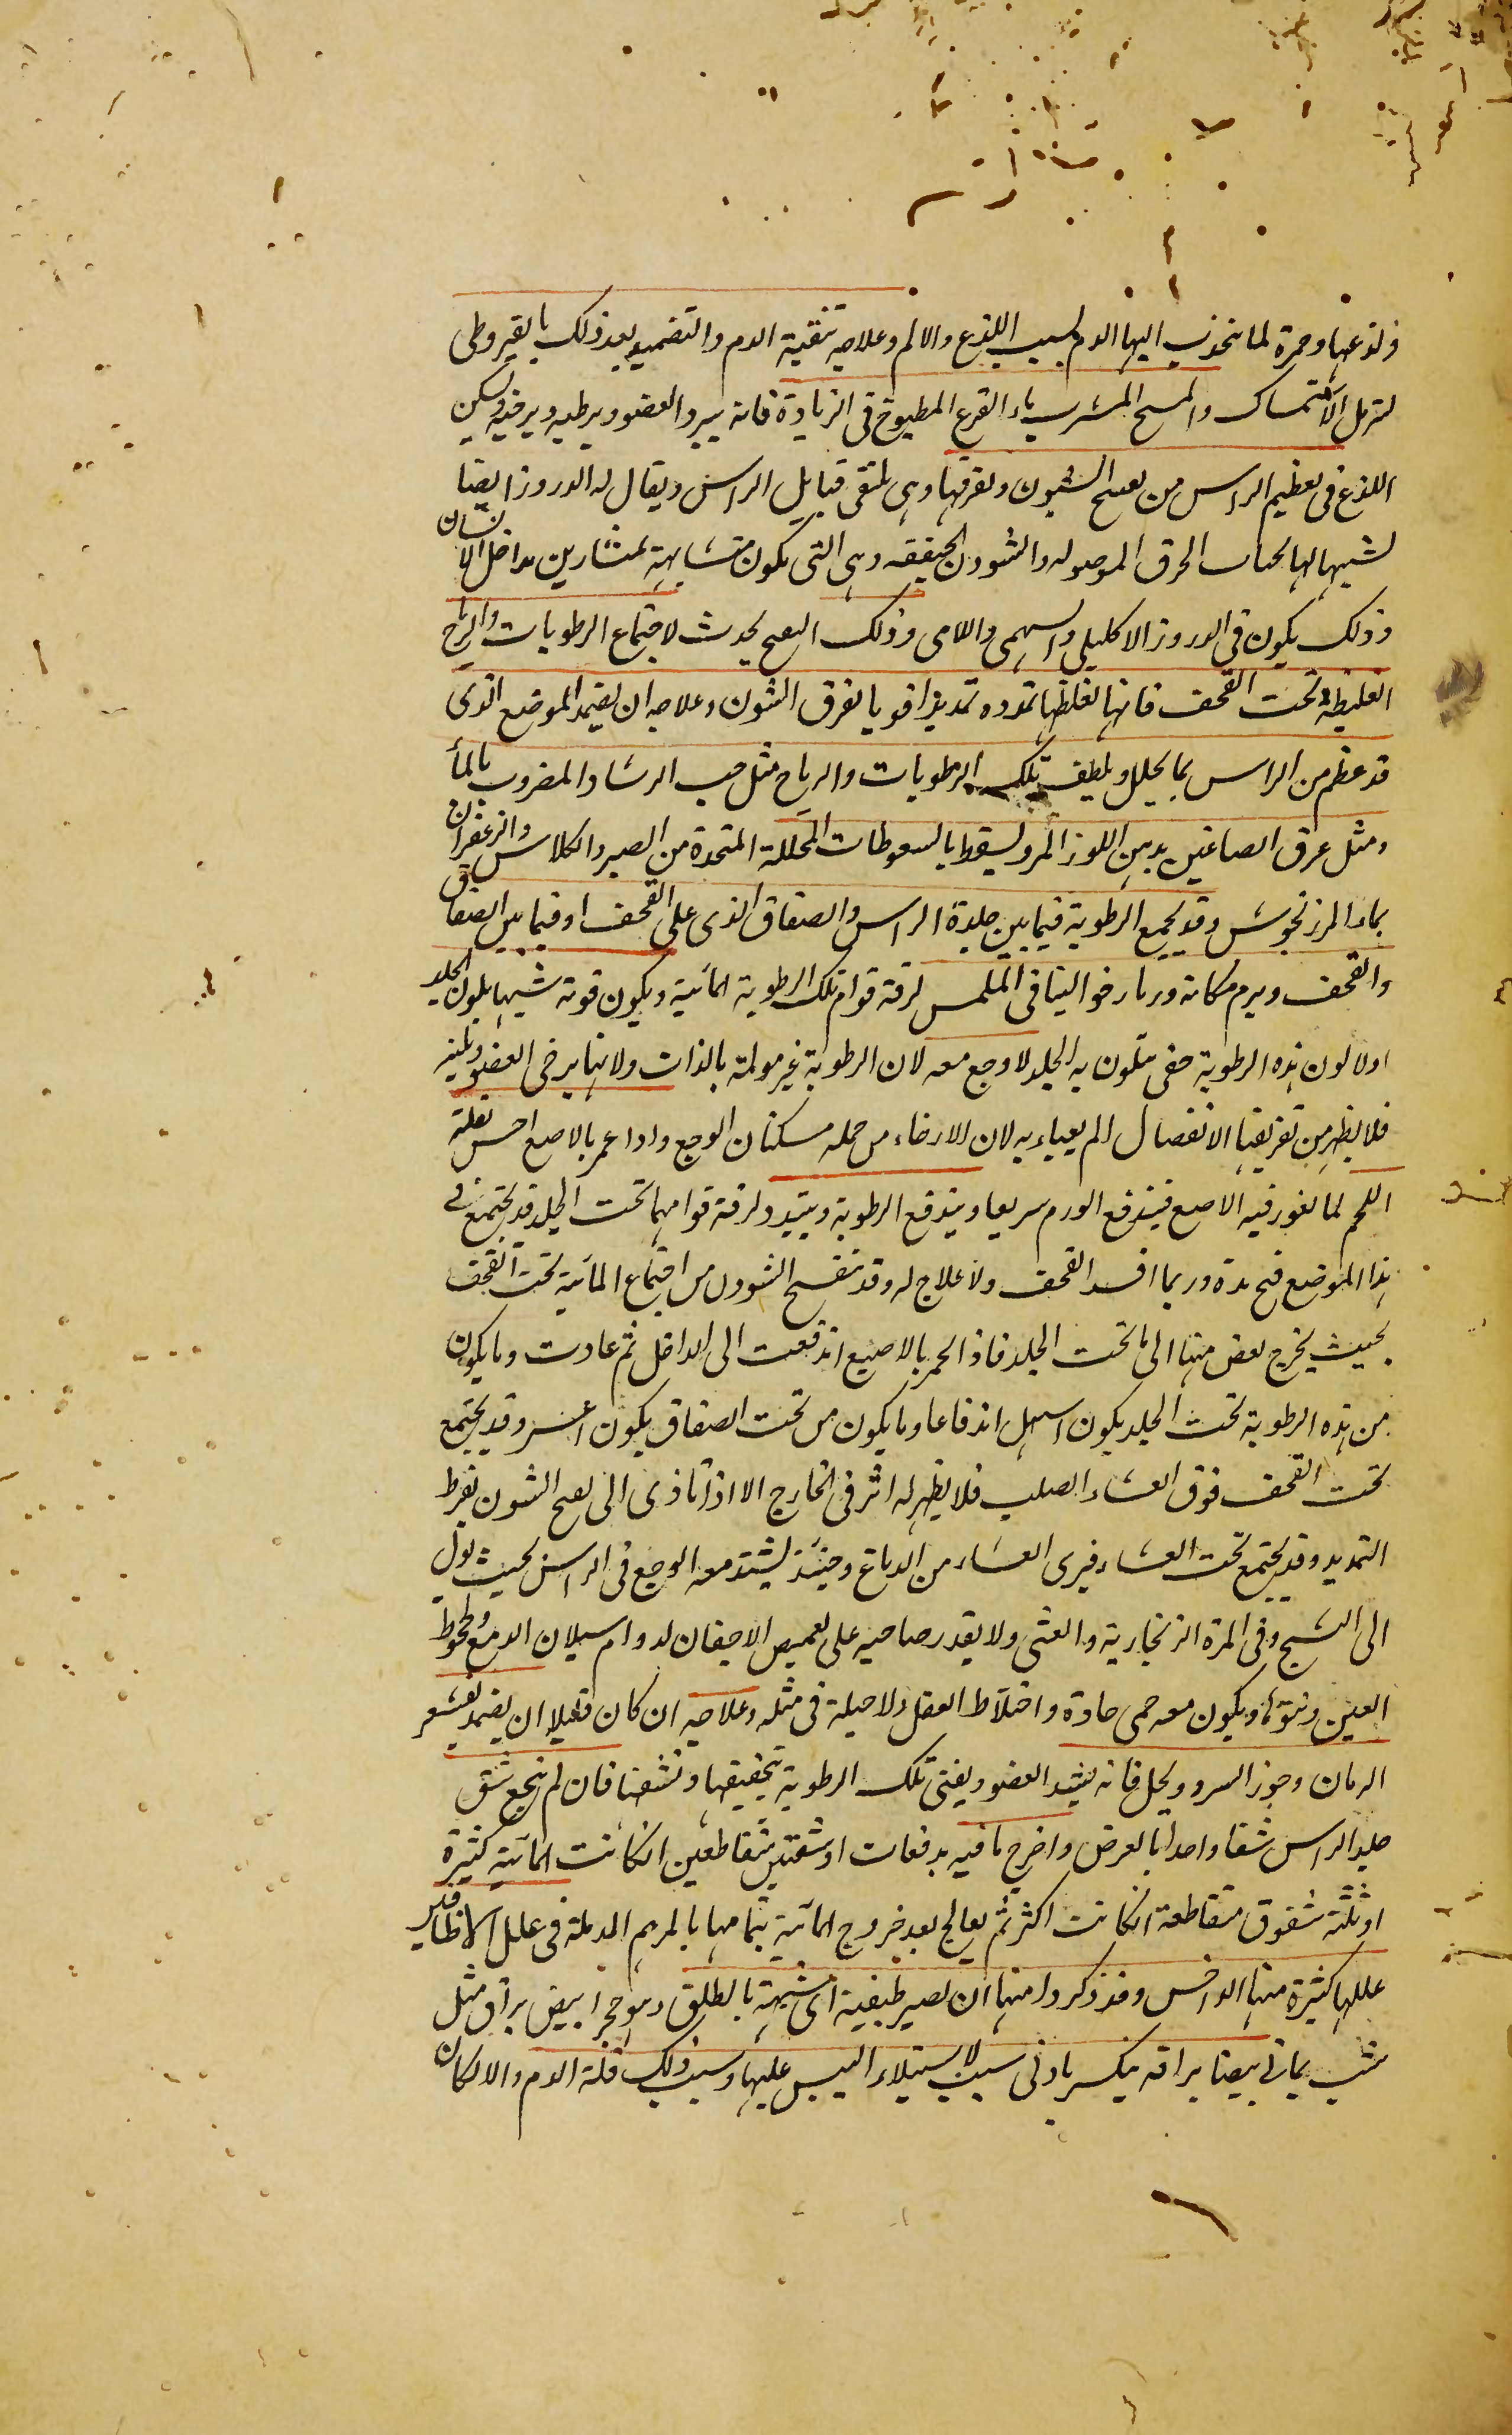 ولذعها وحمرة لما ينجذب اليها الدم بسبب اللذع والالم وعلاجه تنقية الدم والتضميد بعد ذلك بالقيروطى
المشرب بماء القرع المطبوخ فى الزيادة فانه يبرد العضو ويرطبه ويرخيه ويسكن
اللذع فى تعظيم الراس من تفسح الشيون وتفرقها وهى ملتقى قبايل الراس ويقال له الدروز ايضا
تشبيها لها الخرق الموصوله والشوون الحقيقه وهى التى يكون متشابهة لمنشارين مداخل الاسنان
وذلك يكون فى الدروز الاكليلى والسهمى واللامى وذلك التفسح يحدث لاجتماع الرطوبات والرياح
الغليظة تحت القحف فانها لغلظها تمدده تمديدا قويا يفرق الشون وعلاجه ان يضمد الموضع الذى
قد عظم من الراس بما يحلل ويلطف تلك الرطوبات والرياح مثل حب الرشاد المضروب بالماء
ومثل عرق الصاغين بدهن اللوز المر ويسقط بالسعوطات المحللة المتخذة من الصبر والكلاس والزعفران
بماء المرزنجوش وقد يجمع الرطوبة فيما بين جلدة الراس والصفاق الذى على القحف او فيما بين الصفاق
والقحف ويرم مكانه ورما رخوا لينا فى الملمس لرقة قوام تلك الرطوبة المائية ويكون قوته شبيها بلون الجلد
اولا لون هذه الرطوبة حتى يتلون به الجلد لا وجع معه لان الرطوبة غير مولمة بالذات ولانها يرخى العضو ويلينه
فلا يظهر من تفريقها الانفصال الم يعباء به لان الارخاء من جمله مسكنات الوجع واذا غمز بالاصبع احس بقلة
اللحم لما يغور فيه الاصبع فيندفع الورم سريعا ويندفع الرطوبة ويتبدد لرقة قوامها تحت الجلد قد يجتمع فى
هذا الموضع قيح مدة وربما افسد القحف ولا علاج له وقد تنفسح الشوون من اجتماع المائية تحت القحف
بحيث يخرج بعض منها الى ما تحت الجلد فاذا غمز بالاصبع اندفعت الى الداخل ثم عادت وما يكون
من هذه الرطوبة تحت الجلد يكون اسهل اندفاعا وما يكون من تحت الصفاق يكون اعسر وقد يجتمع
تحت القحف فوق الغشاء الصلب فلا يظهر له اثر فى الخارج الا اذا تاذى الى تفسح الشون بفرط
التمديد وقد يجتمع تحت الغشاء فيرى الغشاء من الدماغ وحينئذ يشتد معه الوجع فى الراس بحيث يول
الى التشنج وفى المرة الزنجارية والغشى ولا يقدر صاحبه على تغميض الاجفان لدوام سيلان الدموع وجحوظ
العين ونتوئها ويكون معه حمى حادة واختلاط العقل ولا حيلة فى مثله وعلاجه ان كان قليلا ان يضمد بقشر
الرمان وجوز السرو ويخل فانه يشد العضو ويفنى تلك الرطوبة بتجفيفها ونشفها فان لم ينجع شق
جلد الراس شقا واحدا بالعرض واخرج ما فيه بدفعات او شقين متقاطعين ان كانت المائية كثيرة
او ثلثة شقوق متقاطعة ان كانت اكثر ثم يعالج بعد خروج المائية بتمامها بالمرهم المدملة فى علل الاظافير
عللها كثيرة منها الداخس وقد ذكر وا منها ان تصير طبقية اى شبيهة بالطلق وهو حجر ابيض براق مثل
شب يمانى بيضا براقه ينكسر بادنى سبب لاستيلاء اليبس عليها وسبب ذلك قلة الدم والا لكان